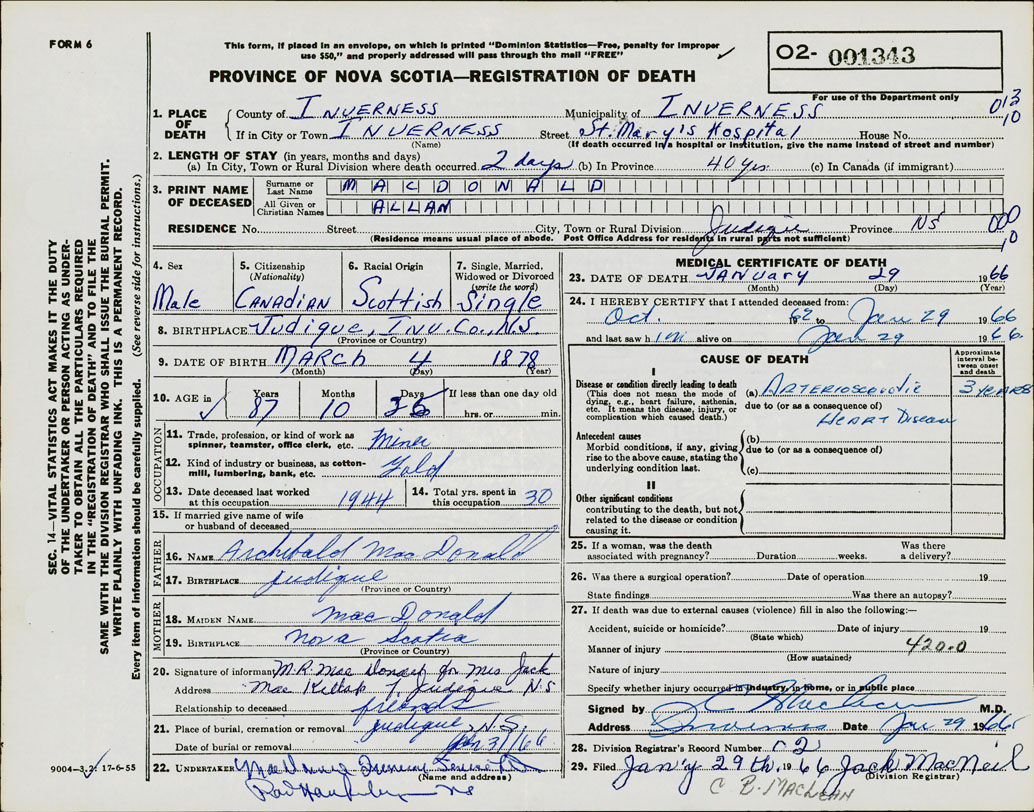 FORM 6
This form, if placed in an envelope, on which is printed "Dominion Statistics—Free, penalty for improper
use $50," and properly addressed will pass through the mail "FREE"
O2- 001343
PROVINCE OF NOVA SCOTIA—REGISTRATION OF DEATH
For use of the Department only
1. PLACE OF DEATH
County of INVERNESS Municipality of INVERNESS 013
If in City or Town INVERNESS Street St. Mary's Hospital House No. 10
(Name) (If death occurred in a hospital or institution, give the name instead of street and number)
2. LENGTH OF STAY (in years, months and days)
(a) In City, Town or Rural Division where death occurred 2 days (b) In Province 40 yrs (c) In Canada (if immigrant)
3. PRINT NAME OF DECEASED
Surname or Last Name MACDONALD
All Given or Christian Names ALLAN
RESIDENCE No. Street City, Town or Rural Division Judique Province NS 000
(Residence means usual place of abode. Post Office Address for residents in rural parts not sufficient) 10
4. Sex Male
5. Citizenship (Nationality) CANADIAN
6. Racial Origin Scottish
7. Single, Married, Widowed or Divorced (write the word) Single
8. BIRTHPLACE Judique, Inv. Co., N.S.
(Province or Country)
9. DATE OF BIRTH MARCH 4 1878
(Month) (Day) (Year)
10. AGE in Years Months Days If less than one day old
87 10 hrs. or min.
OCCUPATION
11. Trade, profession, or kind of work as
spinner, teamster, office clerk, etc. Miner
12. Kind of industry or business, as cotton-
mill, lumbering, bank, etc. Gold
13. Date deceased last worked
at this occupation 1944
14. Total yrs. spent in
this occupation 30
15. If married give name of wife
or husband of deceased
FATHER
16. NAME Archibald MacDonald
17. BIRTHPLACE Judique
(Province or Country)
MOTHER
18. MAIDEN NAME MacDonald
19. BIRTHPLACE Nova Scotia
(Province or Country)
20. Signature of informant M.R. MacDonald for Mrs Jack
Address Mac Judique N.S
Relationship to deceased friends
21. Place of burial, cremation or removal Judique, N.S.
Date of burial or removal Jan 31/66
22. UNDERTAKER
(Name and address)
NS
MEDICAL CERTIFICATE OF DEATH
23. DATE OF DEATH JANUARY 29 1966
(Month) (Day) (Year)
24. I HEREBY CERTIFY that I attended deceased from:
Oct. 1962 to Jan 29 1966
and last saw h im alive on Jan 29 1966.
CAUSE OF DEATH
Approximate interval between onset and death
I
Disease or condition directly leading to death
(This does not mean the mode of
dying, e.g., heart failure, asthenia,
etc. It means the disease, injury, or
complication which caused death.)
(a) ARTERIOSCLEROTIC 3 YEARS
due to (or as a consequence of)
HEART Disease
Antecedent causes
Morbid conditions, if any, giving
rise to the above cause, stating the
underlying condition last.
(b)
due to (or as a consequence of)
(c)
II
Other significant conditions
contributing to the death, but not
related to the disease or condition
causing it.
25. If a woman, was the death Was there
associated with pregnancy? Duration weeks. a delivery?
26. Was there a surgical operation? Date of operation 19
State findings Was there an autopsy?
27. If death was due to external causes (violence) fill in also the following:—
Accident, suicide or homicide? Date of injury 19
(State which)
Manner of injury 420.0
(How sustained)
Nature of injury
Specify whether injury occurred in industry, in home, or in public place
Signed by M.D.
Address Inverness Date Jan 29 1966
28. Division Registrar's Record Number 2
29. Filed Jan'y 29th, 1966 Jack MacNeil
(Division Registrar)
C. B. MACLEAN
SEC. 14—VITAL STATISTICS ACT MAKES IT THE DUTY
OF THE UNDERTAKER OR PERSON ACTING AS UNDER-
TAKER TO OBTAIN ALL THE PARTICULARS REQUIRED
IN THE "REGISTRATION OF DEATH" AND TO FILE THE
SAME WITH THE DIVISION REGISTRAR WHO SHALL ISSUE THE BURIAL PERMIT.
WRITE PLAINLY WITH UNFADING INK. THIS IS A PERMANENT RECORD.
Every item of information should be carefully supplied. (See reverse side for instructions.)
9004-3.2: 17-6-55